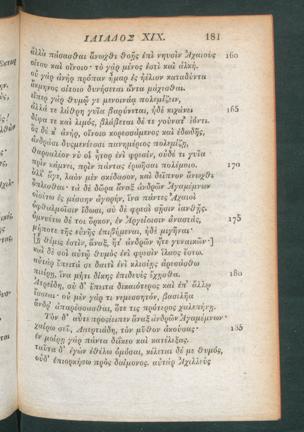 ΙΛΙΑΔΟΣ ΧΙΧ. 181
ἀλλὰ πάσασθαι ἄνωχθι θοῇς ἐπὶ νηυσὶν Ἀχαιοὺς 160
σίτου καὶ οἴνοιο· τὸ γὰρ μένος ἐστὶ καὶ ἀλκή.
οὐ γὰρ ἀνὴρ πρόπαν ἦμαρ ἐς ἠέλιον καταδύντα
ἄκμηνος σίτοιο δυνήσεται ἄντα μάχεσθαι.
εἴπερ γὰρ θυμῷ γε μενοινάᾳ πολεμίζειν,
ἀλλά τε λάθρη γυῖα βαρύνεται, ἠδὲ κιχάνει 165
δίψα τε καὶ λιμός, βλάβεται δέ τε γούνατ' ἰόντι.
ὃς δέ κ' ἀνήρ, οἴνοιο κορεσσάμενος καὶ ἐδωδῆς,
ἀνδράσι δυσμενέεσσι πανημέριος πολεμίζῃ,
θαρσαλέον νύ οἱ ἦτορ ἐνὶ φρεσίν, οὐδέ τι γυῖα
πρὶν κάμνει, πρὶν πάντας ἐρωῆσαι πολέμοιο. 170
ἀλλ' ἄγε, λαὸν μὲν σκέδασον, καὶ δεῖπνον ἄνωχθι
ὅπλεσθαι· τὰ δὲ δῶρα ἄναξ ἀνδρῶν Ἀγαμέμνων
οἰσέτω ἐς μέσσην ἀγορήν, ἵνα πάντες Ἀχαιοὶ
ὀφθαλμοῖσιν ἴδωσι, σὺ δὲ φρεσὶ σῇσιν ἰανθῇς.
ὀμνυέτω δέ τοι ὅρκον, ἐν Ἀργείοισιν ἀναστάς, 175
μήποτε τῆς εὐνῆς ἐπιβήμεναι, ἠδὲ μιγῆναι·
[ἣ θέμις ἐστίν, ἄναξ, ἤτ' ἀνδρῶν ἤτε γυναικῶν·]
καὶ δὲ σοὶ αὐτῷ θυμὸς ἐνὶ φρεσὶν ἵλαος ἔστω.
αὐτὰρ ἔπειτά σε δαιτὶ ἐνὶ κλισίῃς ἀρεσάσθω
πιείρῃ, ἵνα μήτι δίκης ἐπιδευὲς ἔχῃσθα. 180
Ἀτρείδη, σὺ δ' ἔπειτα δικαιότερος καὶ ἐπ' ἄλλῳ
ἔσσεαι· οὐ μὲν γάρ τι νεμεσσητόν, βασιλῆα
ἄνδρ' ἀπαρέσσασθαι, ὅτε τις πρότερος χαλεπήνῃ.
Τὸν δ' αὖτε προσέειπεν ἄναξ ἀνδρῶν Ἀγαμέμνων·
χαίρω σεῦ, Λαερτιάδη, τὸν μῦθον ἀκούσας· 185
ἐν μοίρῃ γὰρ πάντα διίκεο καὶ κατέλεξας.
ταῦτα δ' ἐγὼν ἐθέλω ὀμόσαι, κέλεται δέ με θυμός,
οὐδ' ἐπιορκήσω πρὸς δαίμονος. αὐτὰρ Ἀχιλλεὺς